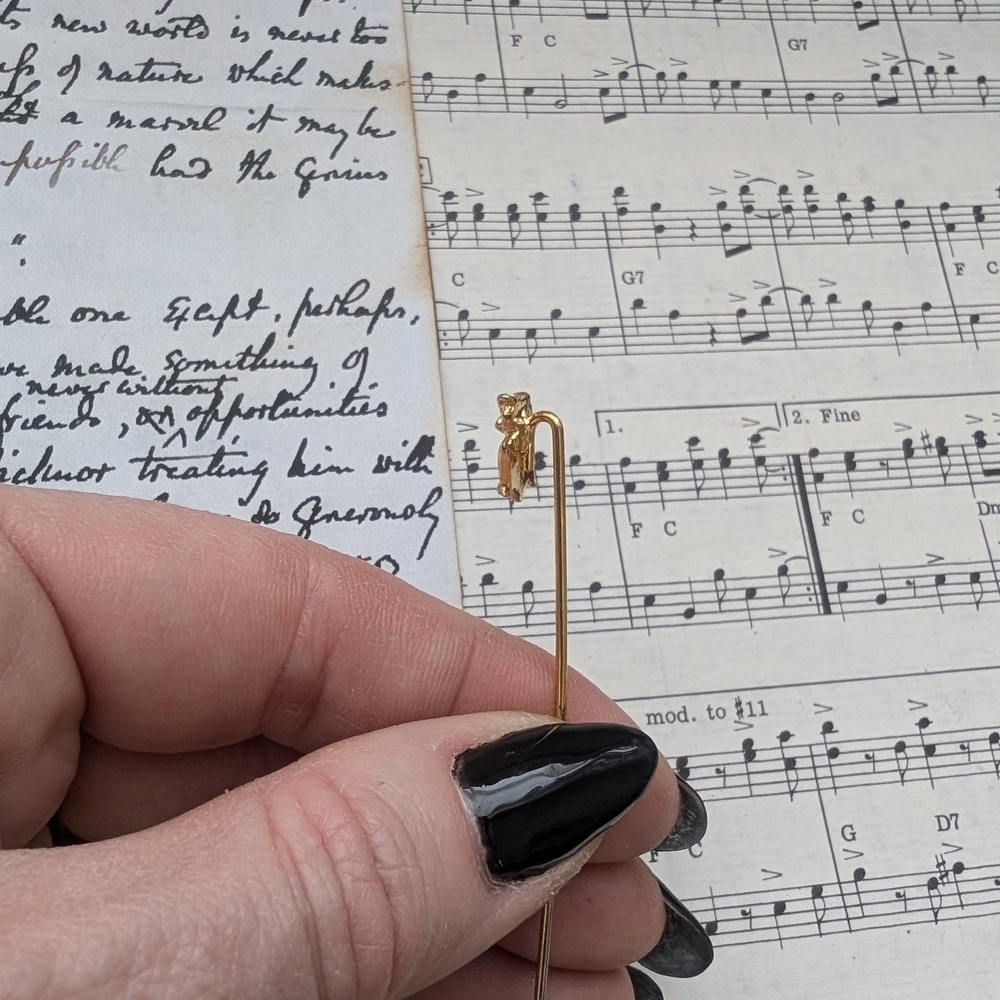 ts new world is never too
of nature which makes
a marvel it may be
impossible had the Genius
"
ble one Except, perhaps,
we made something of
never without
friends, or opportunities
ticknor treating him with
so generously
F C
G7
C
G7
F C
1.
2. Fine
F C
F C
Dm
mod. to #11
F C
G
D7